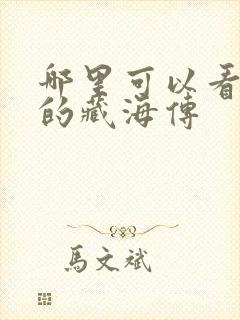 哪里可以看
的藏海傳
馬文斌